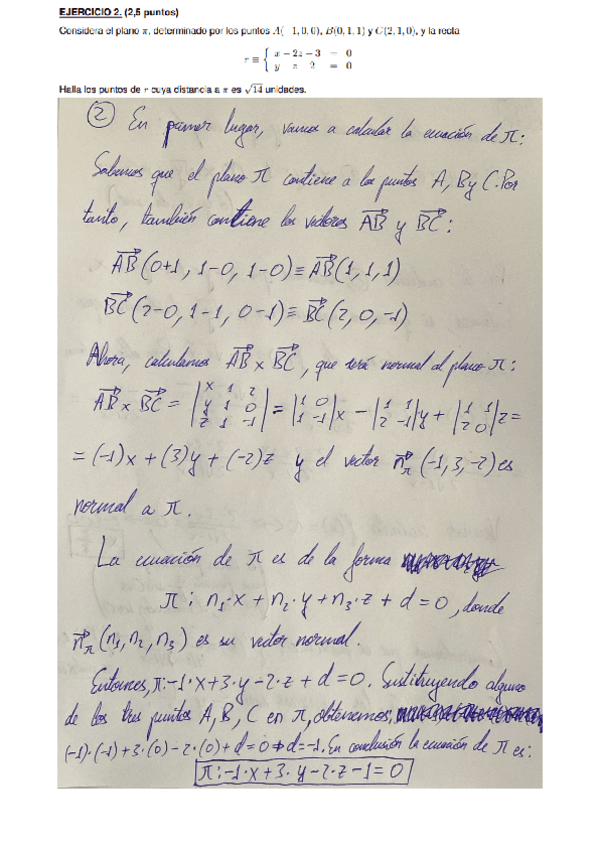 EJERCICIO 2. (2,5 puntos)
Considera el plano π, determinado por los puntos A(−1, 0, 0), B(0, 1, 1) y C(2, 1, 0), y la recta
r ≡ { x − 2z − 3 = 0
y z 2 = 0
Halla los puntos de r cuya distancia a π es √14 unidades.
② En primer lugar, vamos a calcular la ecuación de π:
Sabemos que el plano π contiene a los puntos A, B y C. Por
tanto, también contiene los vectores AB⃗ y BC⃗ :
AB⃗ (0+1, 1-0, 1-0) ≡ AB⃗ (1,1,1)
BC⃗ (2-0, 1-1, 0-1) ≡ BC⃗ (2, 0, -1)
Ahora, calculamos AB⃗ x BC⃗ , que será normal al plano π:
AB⃗ x BC⃗ = |x 1 2; y 1 0; z 1 -1| = |1 0; 1 -1|x - |1 1; 2 -1|y + |1 1; 2 0|z =
= (-1)x + (3)y + (-2)z y el vector n⃗π (-1, 3, -2) es
normal a π.
La ecuación de π es de la forma
π: n₁·x + n₂·y + n₃·z + d = 0, donde
n⃗π (n₁, n₂, n₃) es su vector normal.
Entonces, π: -1·x + 3·y - 2·z + d = 0. Sustituyendo alguno
de los tres puntos A, B, C en π, obtenemos:
(-1)·(-1) + 3·(0) - 2·(0) + d = 0 ⇒ d = -1. En conclusión la ecuación de π es:
π: -1·x + 3·y - 2·z - 1 = 0